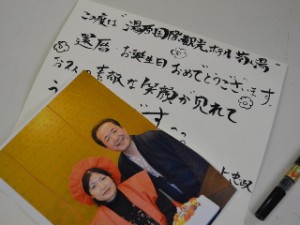 この度は "湯原国際観光ホテル 菊之湯"
還暦 お誕生日 おめでとうございます。
お2人の素敵な笑顔が見れて
う です